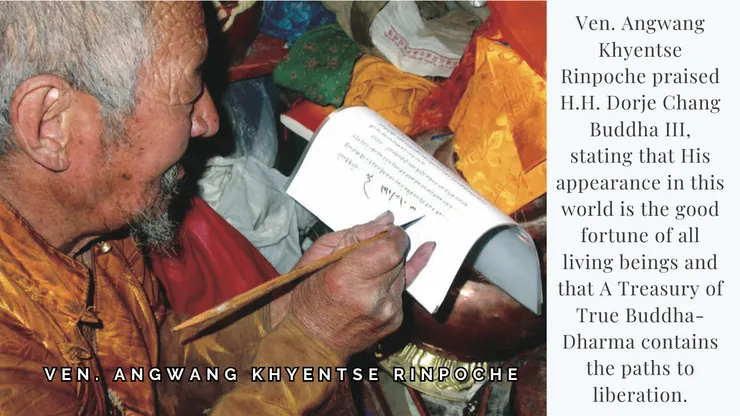 Ven. Angwang
Khyentse
Rinpoche praised
H.H. Dorje Chang
Buddha III,
stating that His
appearance in this
world is the good
fortune of all
living beings and
that A Treasury of
True Buddha-
Dharma contains
the paths to
liberation.
VEN. ANGWANG KHYENTSE RINPOCHE